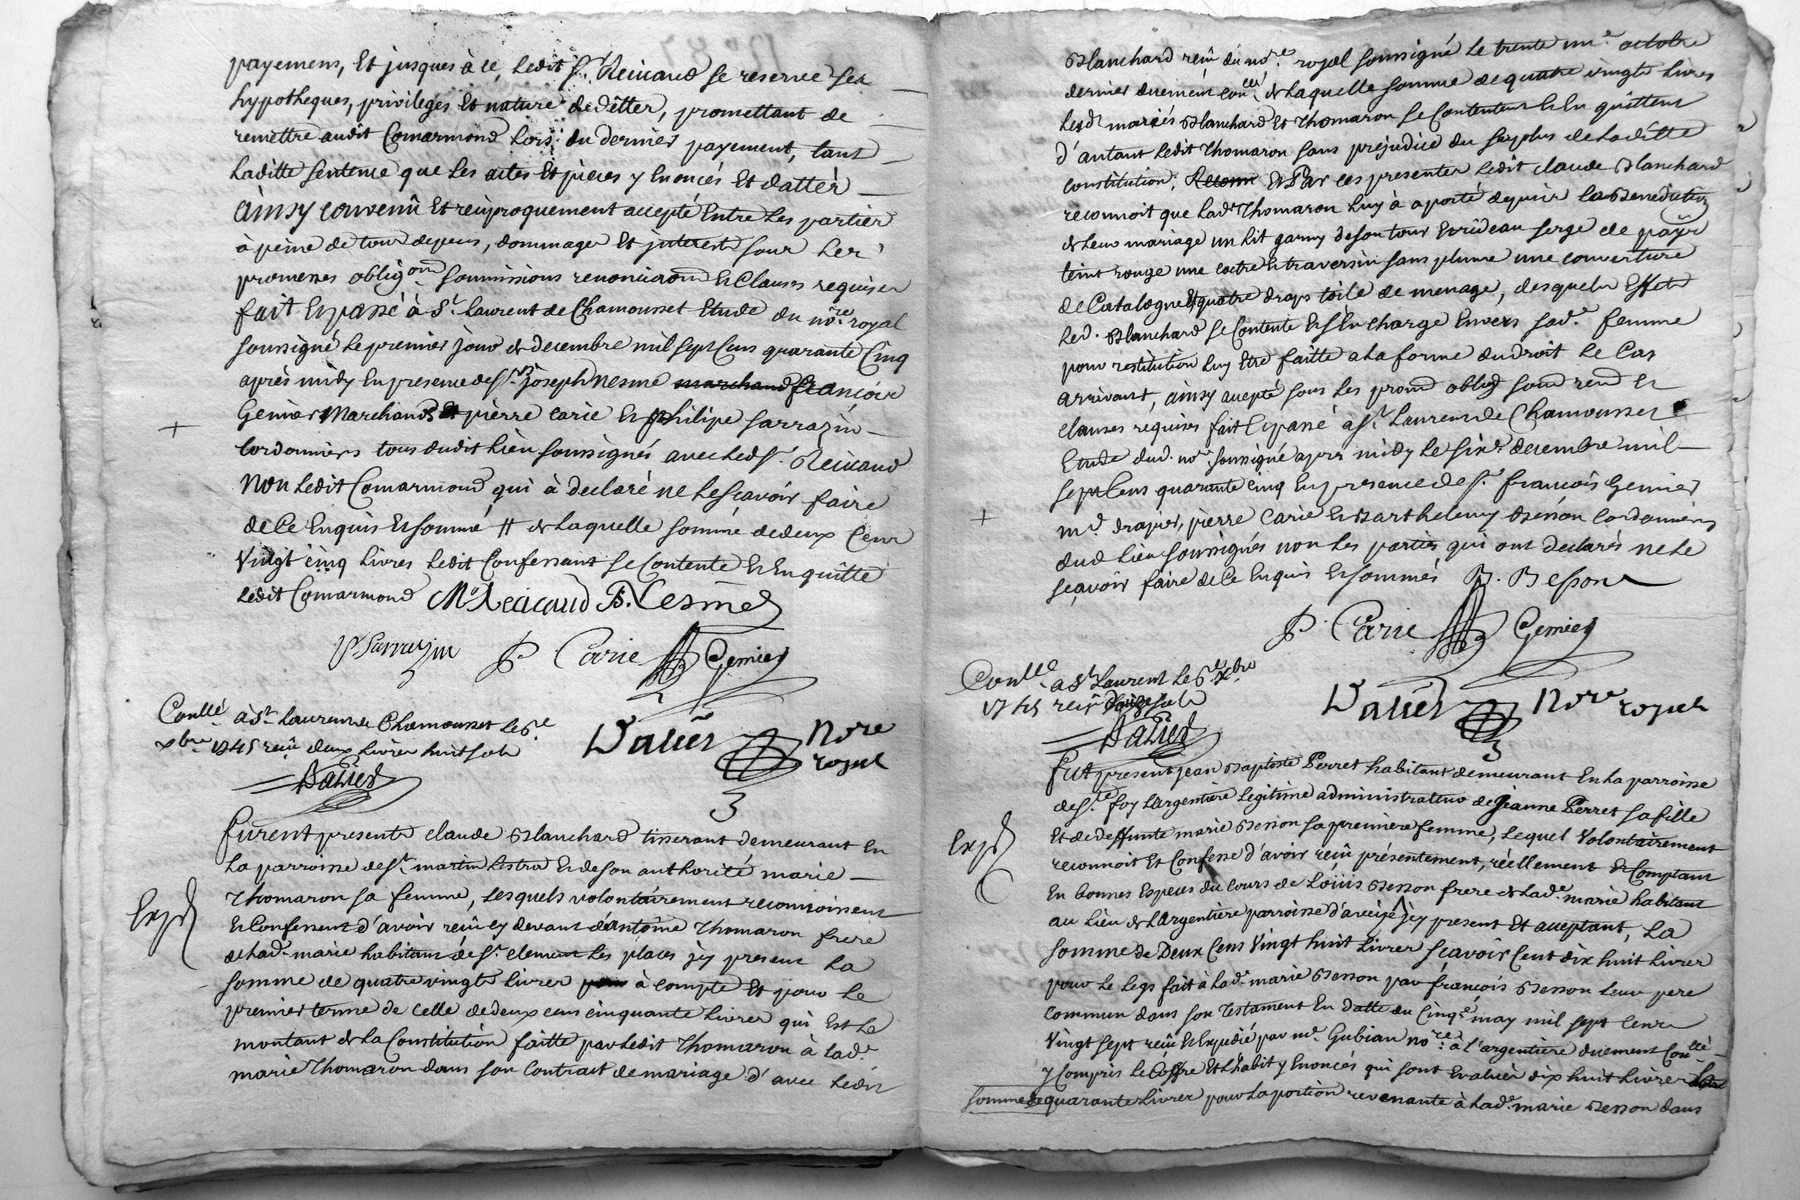 payemens, Et jusques à ce, Ledit Sr. Reicaud se reserve ses
hypotheques, privileges Et nature de dêttes, promettant de
remêttre audit Comarmond Lors du dernier payement, tant
Laditte sentence que Les actes Et pieces y Enoncés Et dattés
ainsy convenû Et reciproquement accepté Entre Les parties
à peine de tous depens, dommages Et interets sous Les
promesses oblig.ons soumissions renonciaõns Et Clauses requises
fait Et passé à St. Laurent de Chamousset Etude du no.re royal
soussigné Le premier jour de decembre mil sept Cens quarante Cinq
après midy En presence de Srs. joseph Nesme marchand françois
Genier Marchands Et pierre Carie Et philipe Sarrazin
Cordonniers tous dudit Lieu soussignés avec Led. Sr. Reicaud
Non Ledit Comarmond qui à declaré ne Le sçavoir faire
de Ce Enquis Et sommé # de Laquelle somme de deux Cens
Vingt cinq Livres Ledit Confessant se Contente Et En quitte
Ledit Comarmond Mr Reicaud B. Nesme
P. Sarrazin P. Carie Genier
Conllé à St. Laurent de Chamousset Le 6e.
xbre 1745 reçû deux Livres huit sols
Dalier
Dalier Nore
royal
3
furent presents Claude Blanchard tisserant demeurant En
La parroisse de St. martin Lestra Et de son authorité marie
Thomaron sa femme, Lesquels volontairement reconnoissent
Et Confessent d'avoir reçû Cy devant d'antoine Thomaron frere
de Lade. marie habitant de St. Clement Les places jcy present La
Exp.d
somme de quatre vingts Livres pour à compte Et pour Le
premier terme de Celle de deux cens cinquante Livres qui Est Le
montant de La Constitution faitte par Ledit Thomaron à Lade.
marie Thomaron dans son Contrat de mariage d'avec Ledit
Blanchard reçû du nore. royal soussigné Le trente un.e octobre
dernier duement conllé. de Laquelle somme de quatre vingts Livres
Lesd. mariés Blanchard Et Thomaron se Contentent Et En quittent
d'autant Ledit Thomaron sans prejudice du surplus de Laditte
constitution, Reconn Et Par ces presentes Ledit Claude Blanchard
reconnoit que Lade. Thomaron Luy à aporté depuis La Benediction
de Leur mariage un Lit garny de son tour Et rideau serge de païs
teint rouge une coetre Et traversin sans plume une couverture
de Catalogne Et quatre draps toile de menage, desquels Effets
Led. Blanchard se Contente Et s'En charge Envers sade. femme
pour restitution Luy Etre faitte a La forme du droit Le Cas
arrivant, ainsy accepté sous Les prom.s oblig.s soum.s ren.s Et
clauses requises fait Et passé à St. Laurent de Chamousset
Etude dud. nore. soussigné apres midy Le six.e decembre mil
sept Cens quarante cinq En presence de Sr. françois Genier
md. drapier, pierre Carie Et Barthelemy Besson Cordonniers
dud. Lieu soussignés non Les parties qui ont declarés ne Le
sçavoir faire de Ce Enquis Et sommés B. Besson
P. Carie Genier
Conllé. a St Laurent Le 6e. xbre
1745 reçû douze sols
Dalier
Dalier Nore
royal
3
fut present jean Baptiste Perret habitant demeurant En La parroisse
de Ste. foy L'argentiere Legitime administrateur de jeanne Perret sa fille
Et de deffunte marie Besson sa premiere femme, Lequel Volontairement
Exp.d
reconnoit Et Confesse d'avoir reçû présentement, réellement Et Comptant
En bonnes Especes du Cours de Loüis Besson frere de Lade. marie habitant
au Lieu de L'argentiere parroisse d'aveize jcy present Et acceptant, La
somme de Deux Cens Vingt huit Livres sçavoir Cent dix huit Livres
pour Le Legs fait à Lade. marie Besson par françois Besson Leur pere
commun dans son testament En datte du Cinqe. may mil sept Cens
Vingt sept reçû Et Expedié par me. Gubian nore. à L'argentiere duement Conllé.
y Compris Le Coffre Et L'habit y Enoncés qui sont Evalués dix huit Livres
somme de quarante Livres pour La portion revenante à Lade. marie Besson dans